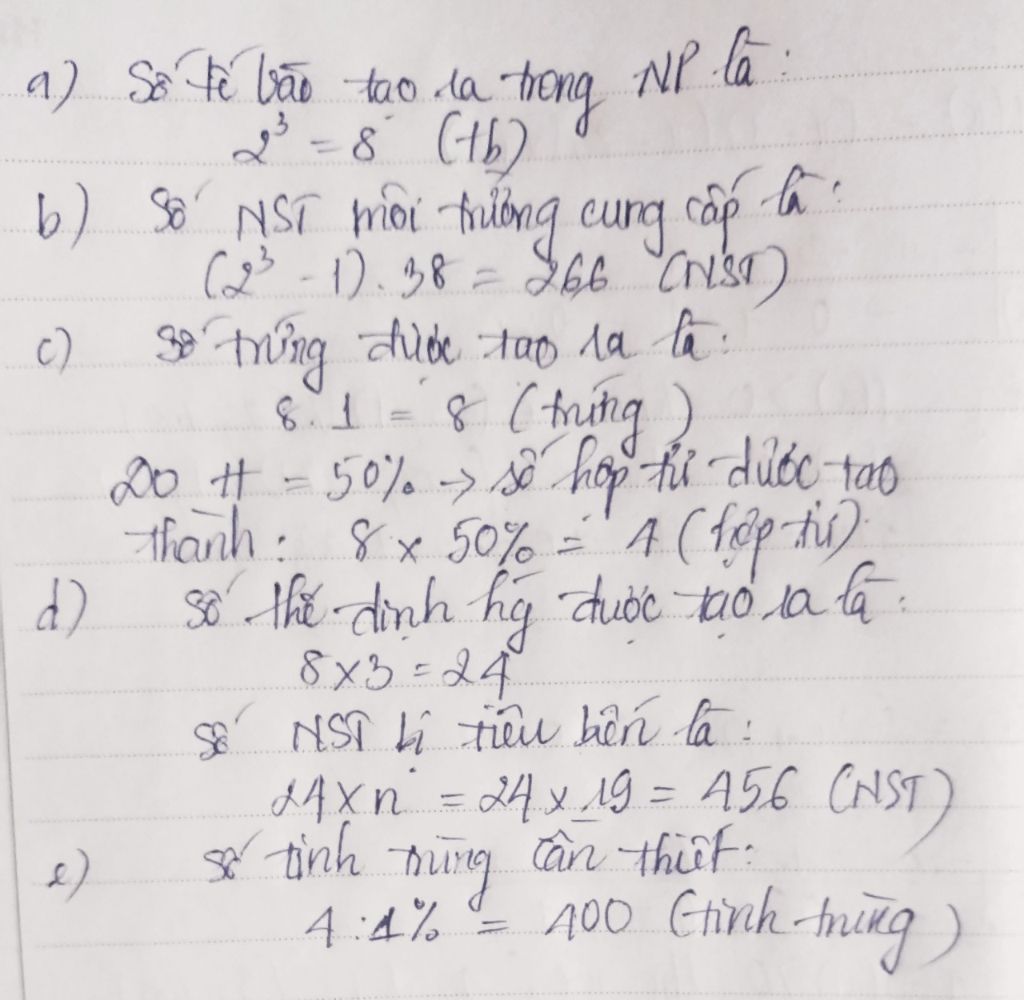 a) Số tế bào tạo ra trong NP là:
2³ = 8 (tb)
b) Số NST môi trường cung cấp là:
(2³ - 1). 38 = 266 (NST)
c) Số trứng được tạo ra là:
8. 1 = 8 (trứng)
Do H = 50% → số hợp tử được tạo
thành: 8 x 50% = 4 (hợp tử)
d) Số thể định hg được tạo ra là:
8x3 = 24
Số NST bị tiêu biến là:
24xn = 24 x 19 = 456 (NST)
e) Số tinh trùng cần thiết:
4:1% = 400 (tinh trùng)